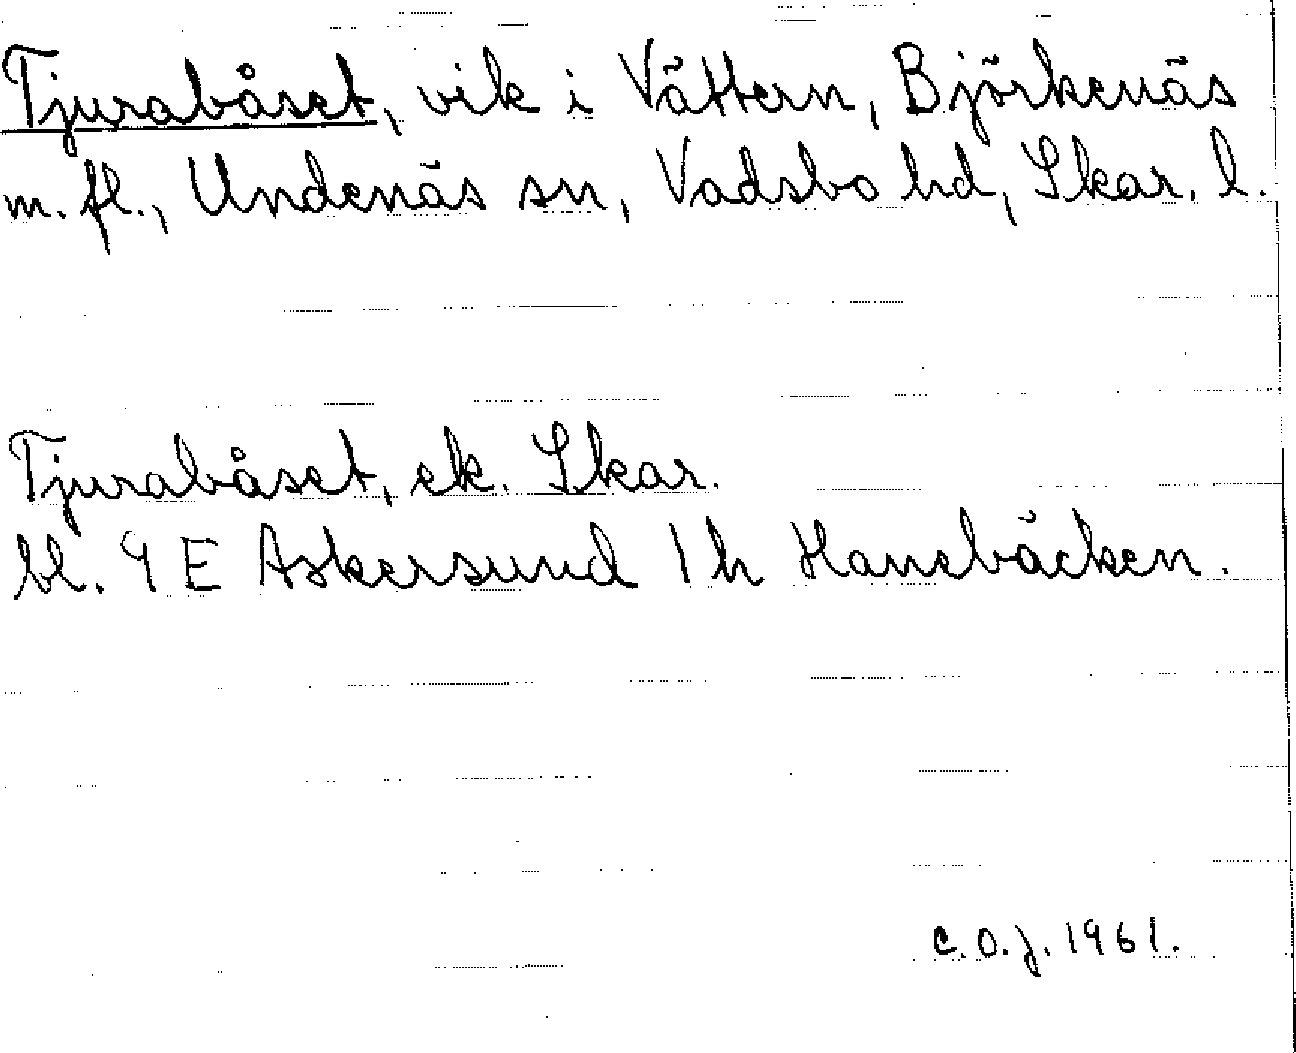 Tjurabåset, vik i Vättern, Björkenäs
m.fl., Undenäs sn, Vadsbo hd, Skar. l.
Tjurabåset, ek. Skar.
bl. 9 E Askersund 1 h Hanebäcken.
C.O.J. 1961.